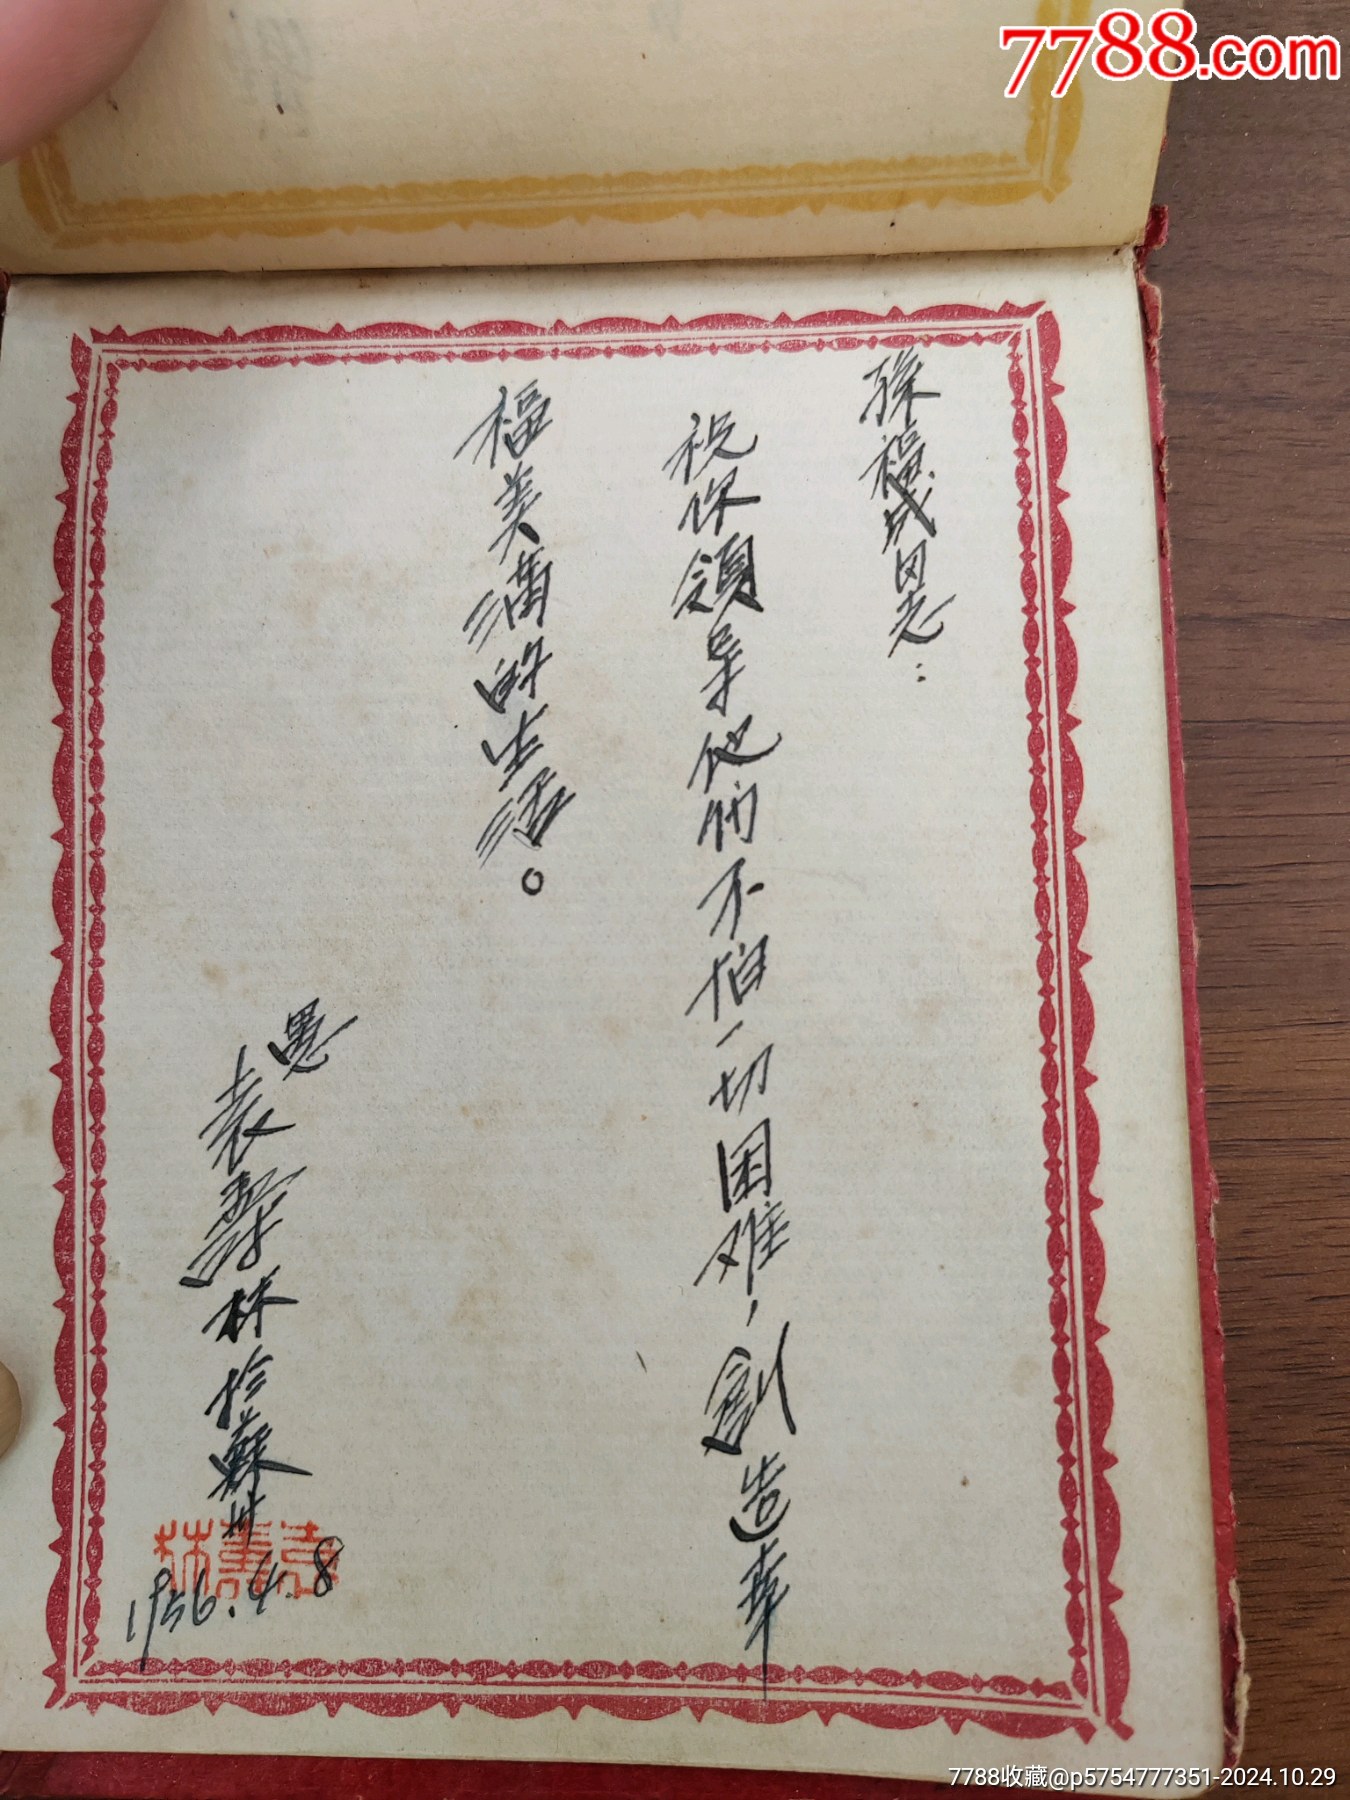 7788.com
孫福成同志：
祝你領导他們不怕一切困难，創造幸
福美滿的生活。
愚
袁壽林於蘇州
1956.4.8
袁壽林
7788收藏@p5754777351-2024.10.29